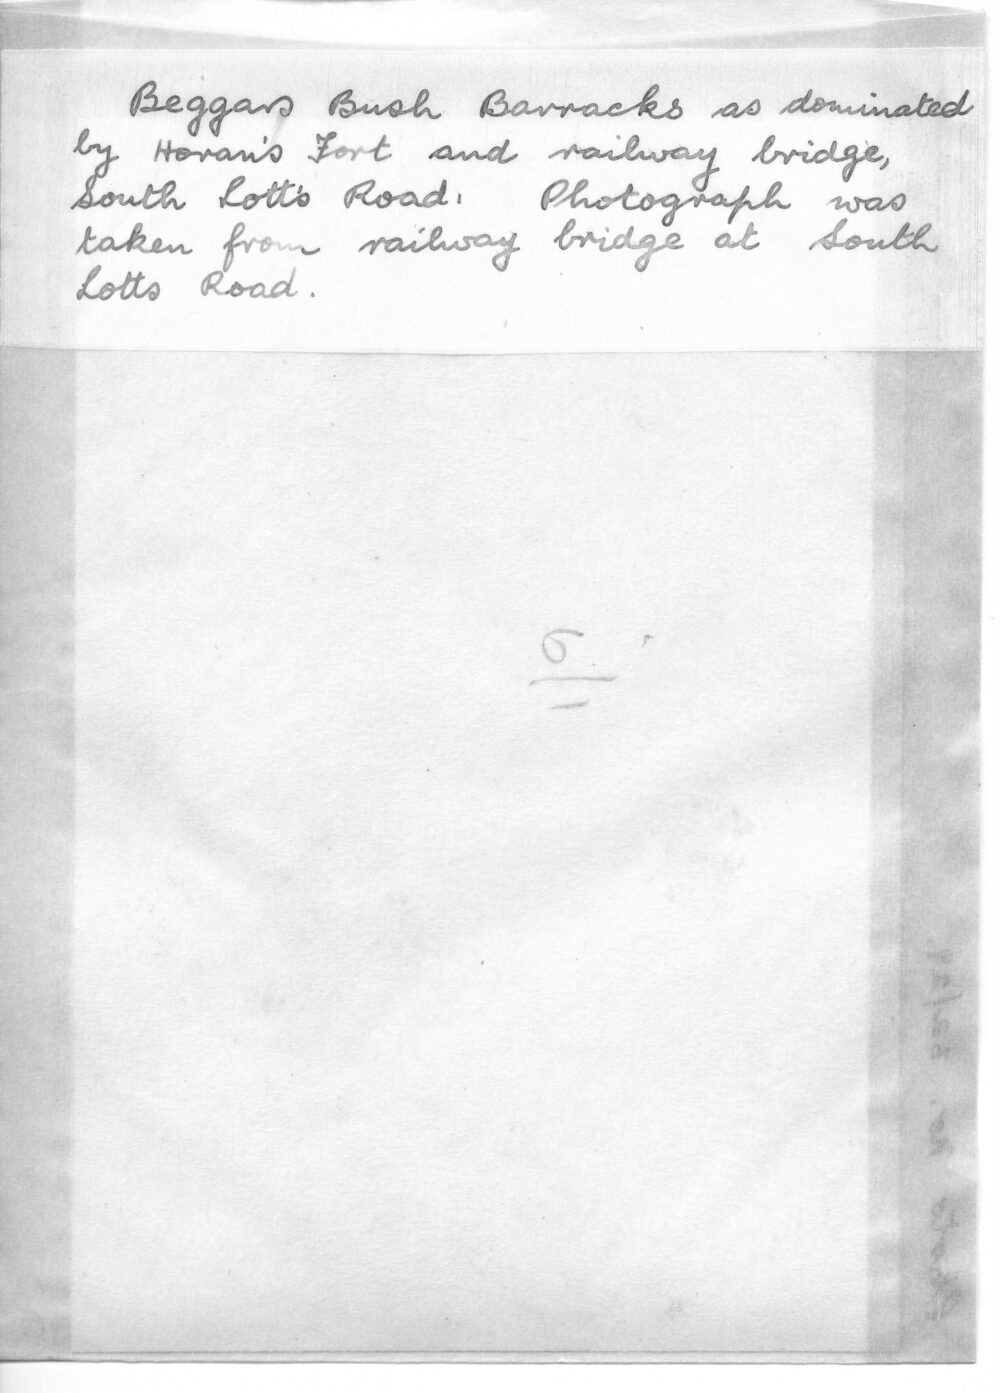 Beggars Bush Barracks as dominated
by Horan's Fort and railway bridge,
South Lott's Road. Photograph was
taken from railway bridge at South
Lotts Road.
6
1
Photo No. 52/24.